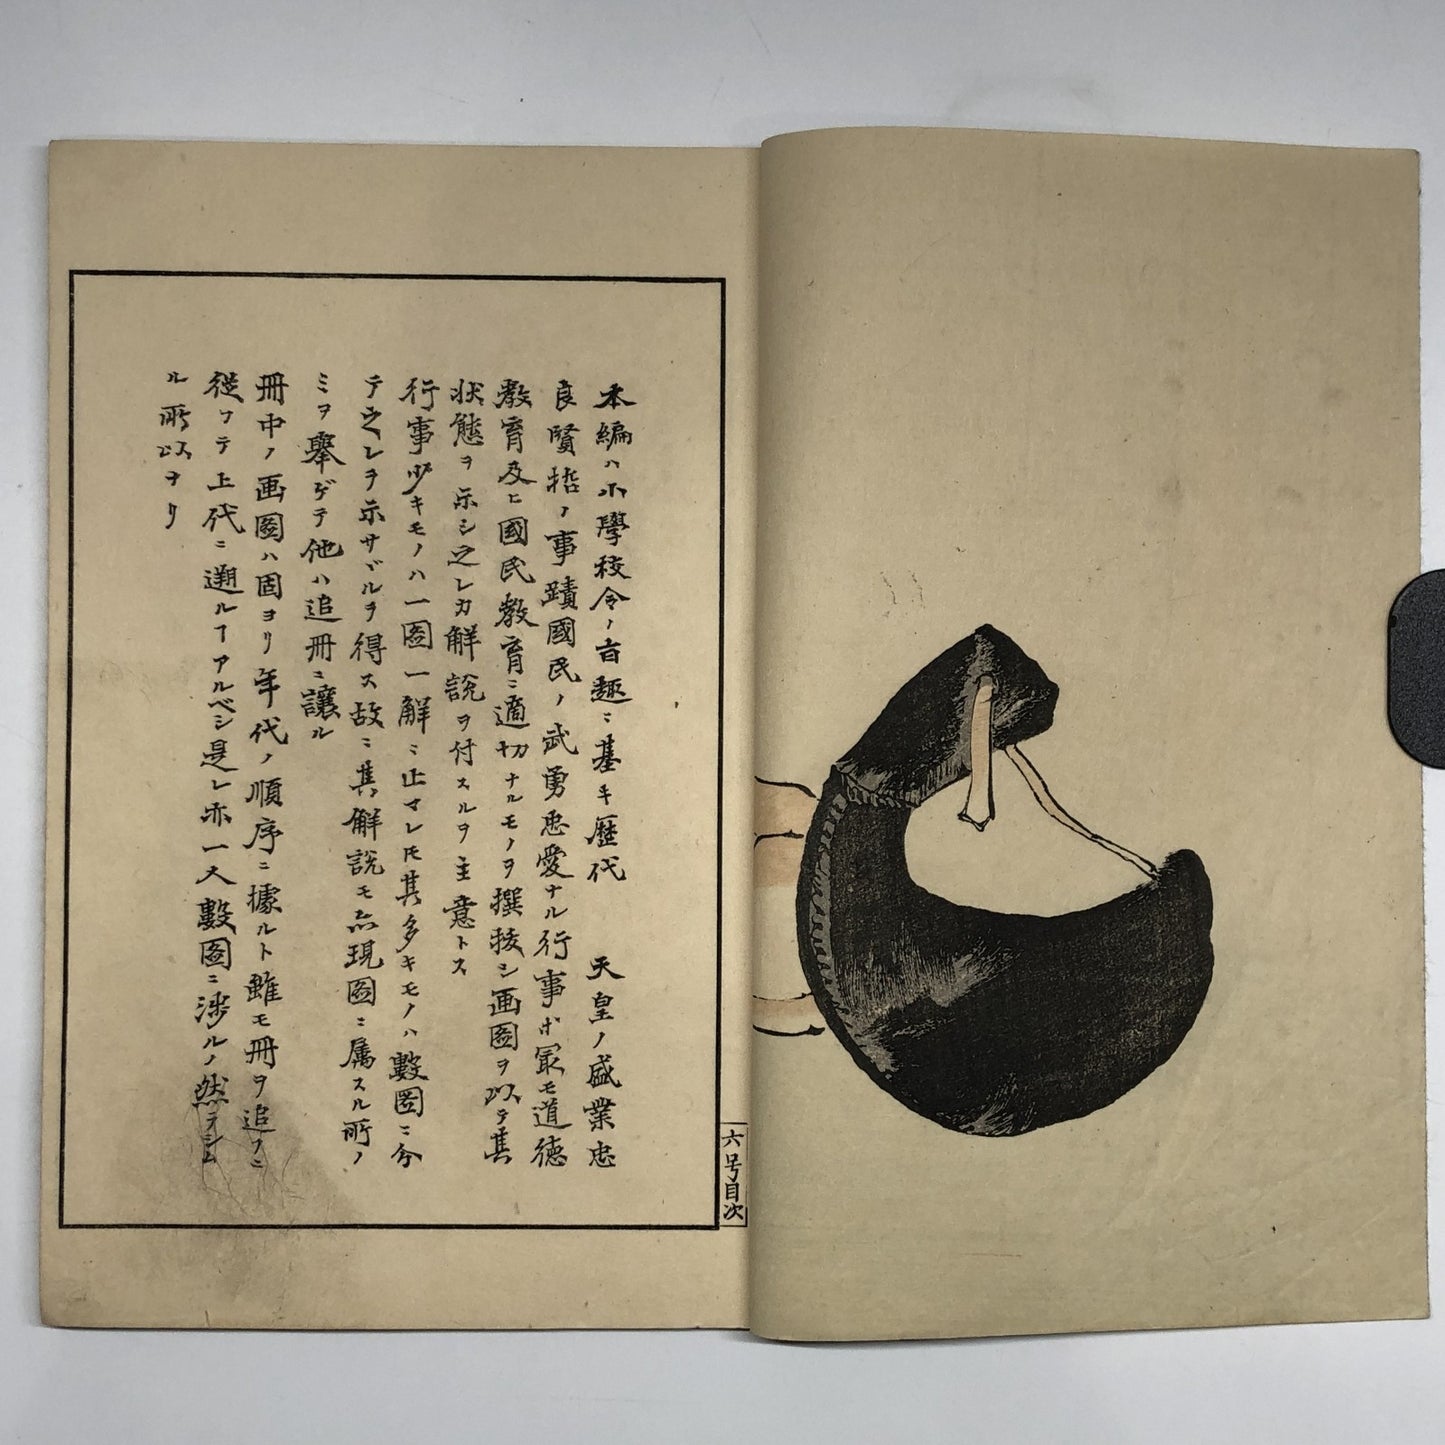 本編ハ小學校令ノ旨趣ニ基キ歴代　天皇ノ盛業忠
良賢哲ノ事蹟國民ノ武勇忠愛ナル行事ホ冣モ道徳
教育及ヒ國民教育ニ適切ナルモノヲ撰抜シ画圖ヲ以テ其
状態ヲ示シ之レカ解説ヲ付スルヲ主意トス
行事少キモノハ一圖一解ニ止マレ𪜈其多キモノハ數圖ニ分
テ之レヲ示サヾルヲ得ス故ニ其解説モ亦現圖ニ属スル所ノ
ミヲ舉ゲテ他ハ追冊ニ譲ル
冊中ノ画圖ハ固ヨリ年代ノ順序ニ據ルト雖モ冊ヲ追フニ
從フテ上代ニ遡ルヿアルベシ是レ亦一人數圖ニ渉ルノ然ラシム
ル所以ナリ
六号目次